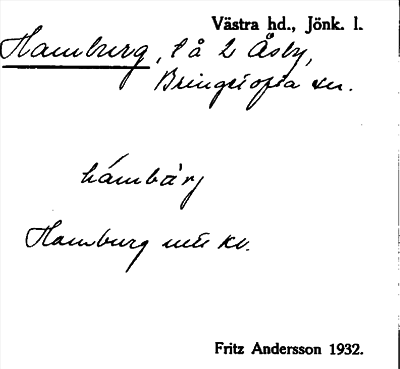 Västra hd., Jönk. l.
Hamburg, l å 2 Åsby,
Bringetofta sn.
hámbàrj
Hamburg
Fritz Andersson 1932.